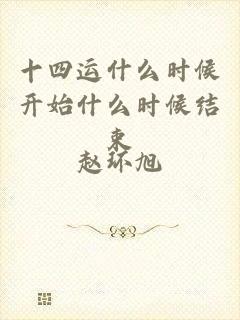 十四运什么时候
开始什么时候结
束
赵环旭